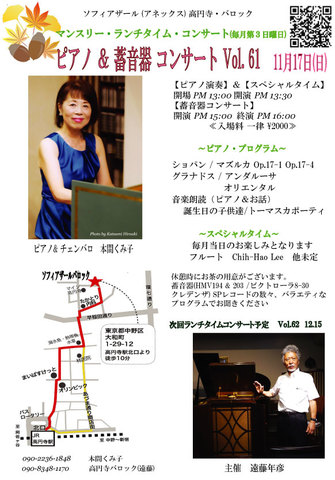 ソフィアザール (アネックス) 高円寺・バロック
マンスリー・ランチタイム・コンサート(毎月第3日曜日)
ピアノ & 蓄音器 コンサート Vol. 61 11月17日(日)
【ピアノ演奏】&【スペシャルタイム】
開場 PM 13:00 開演 PM 13:30
【蓄音器コンサート】
開演 PM 15:00 終演 PM 16:00
≪入場料 一律 ¥2000≫
～ピアノ・プログラム～
ショパン / マズルカ Op.17-1 Op.17-4
グラナドス / アンダルーサ
オリエンタル
音楽朗読（ピアノ&お話）
誕生日の子供達/トーマスカポーティ
Photo by Katsumi Hiruuki
ピアノ& チェンバロ 本間くみ子
～スペシャルタイム～
毎月当日のお楽しみとなります
フルート Chih-Hao Lee 他未定
休憩時にお茶の用意がございます。
蓄音器(HMV194 & 203 /ビクトローラ8-30
クレデンザ) SPレコードの数々、バラエティな
プログラムでお聞きください
次回ランチタイムコンサート予定 Vol.62 12.15
ソフィアザールバロック
早稲田通り
東京都中野区
大和町
1-29-12
高円寺駅北口より
徒歩10分
まいばすけっと
オリンピック
バス
ロータリー
北口
JR
高円寺駅
至 中野ー新宿
090-2236-1848 本間くみ子
090-8348-1170 高円寺バロック(遠藤)
主催 遠藤年彦